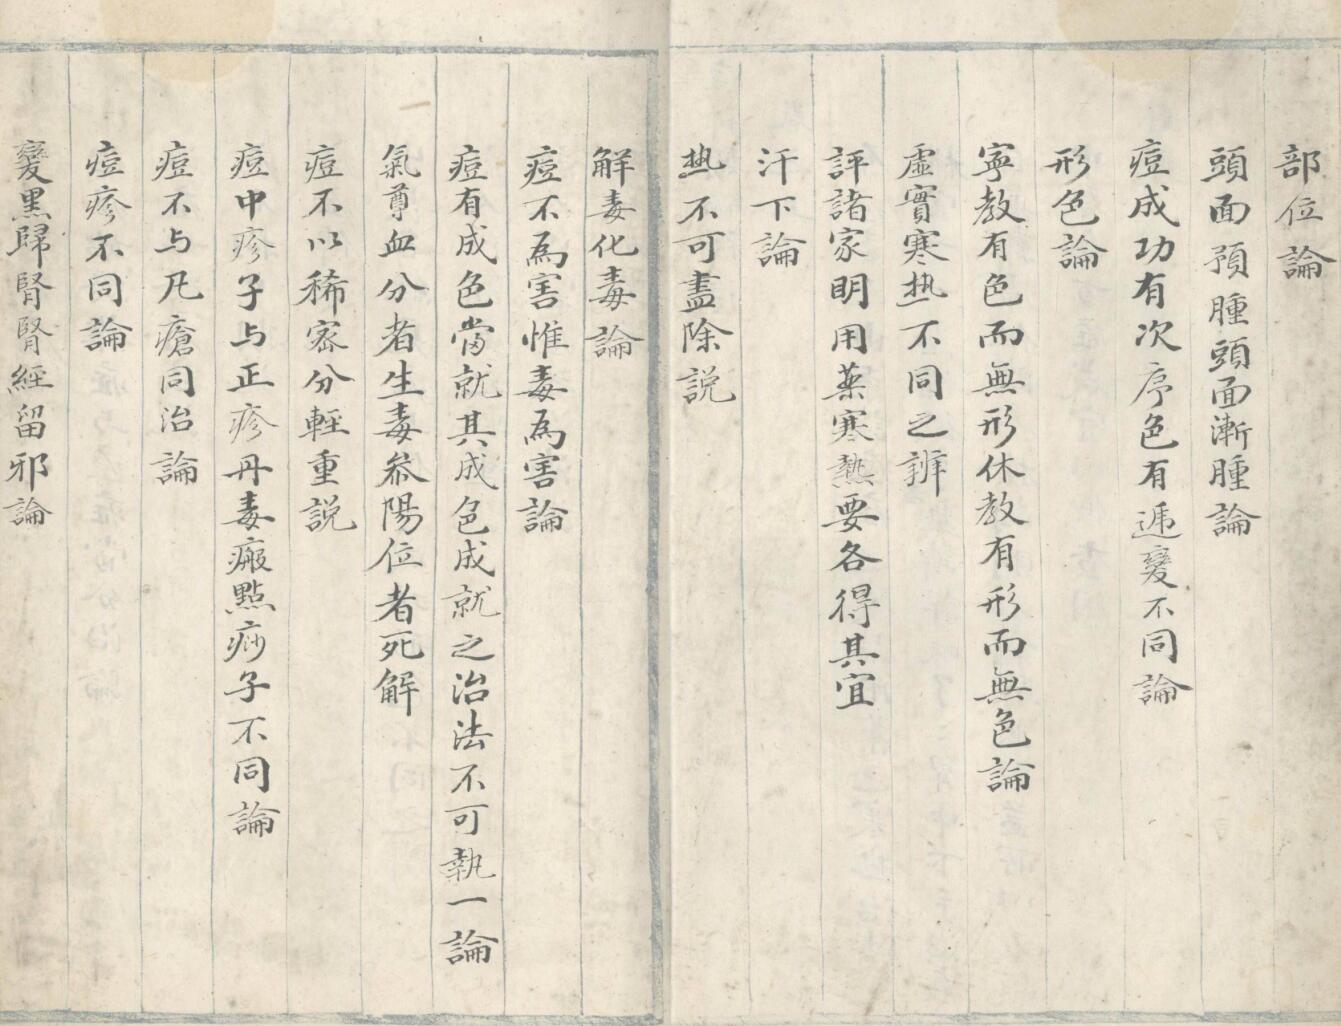 部位論
頭面預腫頭面漸腫論
痘成功有次序色有遞變不同論
形色論
寜教有色而無形休教有形而無色論
虚實寒热不同之辨
評諸家明用薬寒熱要各得其宜
汗下論
热不可盡除説
解毒化毒論
痘不為害惟毒為害論
痘有成色當就其成色成就之治法不可執一論
氣尊血分者生毒叅陽位者死解
痘不以稀宻分輕重説
痘中疹子与正疹丹毒瘢點痧子不同論
痘不与凡瘡同治論
痘疹不同論
變黒歸腎腎經留邪論